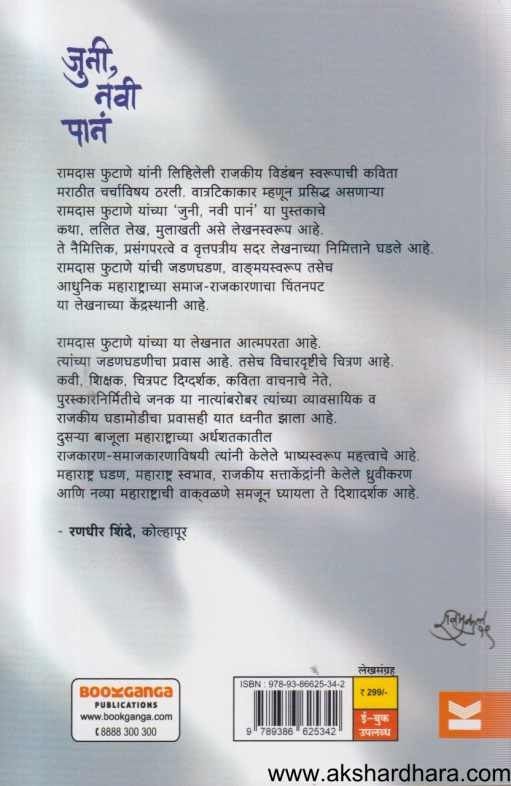 जुनी,
नवी
पानं
रामदास फुटाणे यांनी लिहिलेली राजकीय विडंबन स्वरूपाची कविता
मराठीत चर्चाविषय ठरली. वात्रटिकाकार म्हणून प्रसिद्ध असणाऱ्या
रामदास फुटाणे यांच्या 'जुनी, नवी पानं' या पुस्तकाचे
कथा, ललित लेख, मुलाखती असे लेखनस्वरूप आहे.
ते नैमित्तिक, प्रसंगपरत्वे व वृत्तपत्रीय सदर लेखनाच्या निमित्ताने घडले आहे.
रामदास फुटाणे यांची जडणघडण, वाङ्मयस्वरूप तसेच
आधुनिक महाराष्ट्राच्या समाज-राजकारणाचा चिंतनपट
या लेखनाच्या केंद्रस्थानी आहे.
रामदास फुटाणे यांच्या या लेखनात आत्मपरता आहे.
त्यांच्या जडणघडणीचा प्रवास आहे. तसेच विचारदृष्टीचे चित्रण आहे.
कवी, शिक्षक, चित्रपट दिग्दर्शक, कविता वाचनाचे नेते,
पुरस्कारनिर्मितीचे जनक या नात्यांबरोबर त्यांच्या व्यावसायिक व
राजकीय घडामोडीचा प्रवासही यात ध्वनीत झाला आहे.
दुसऱ्या बाजूला महाराष्ट्राच्या अर्धशतकातील
राजकारण-समाजकारणाविषयी त्यांनी केलेले भाष्यस्वरूप महत्त्वाचे आहे.
महाराष्ट्र घडण, महाराष्ट्र स्वभाव, राजकीय सत्ताकेंद्रांनी केलेले ध्रुवीकरण
आणि नव्या महाराष्ट्राची वाक्वळणे समजून घ्यायला ते दिशादर्शक आहे.
- रणधीर शिंदे, कोल्हापूर
BOOKGANGA
PUBLICATIONS
www.bookganga.com
8888 300 300
ISBN : 978-93-86625-34-2
9 789386 625342
लेखसंग्रह
₹ 299/-
ई-बुक
उपलब्ध
www.akshardhara.com